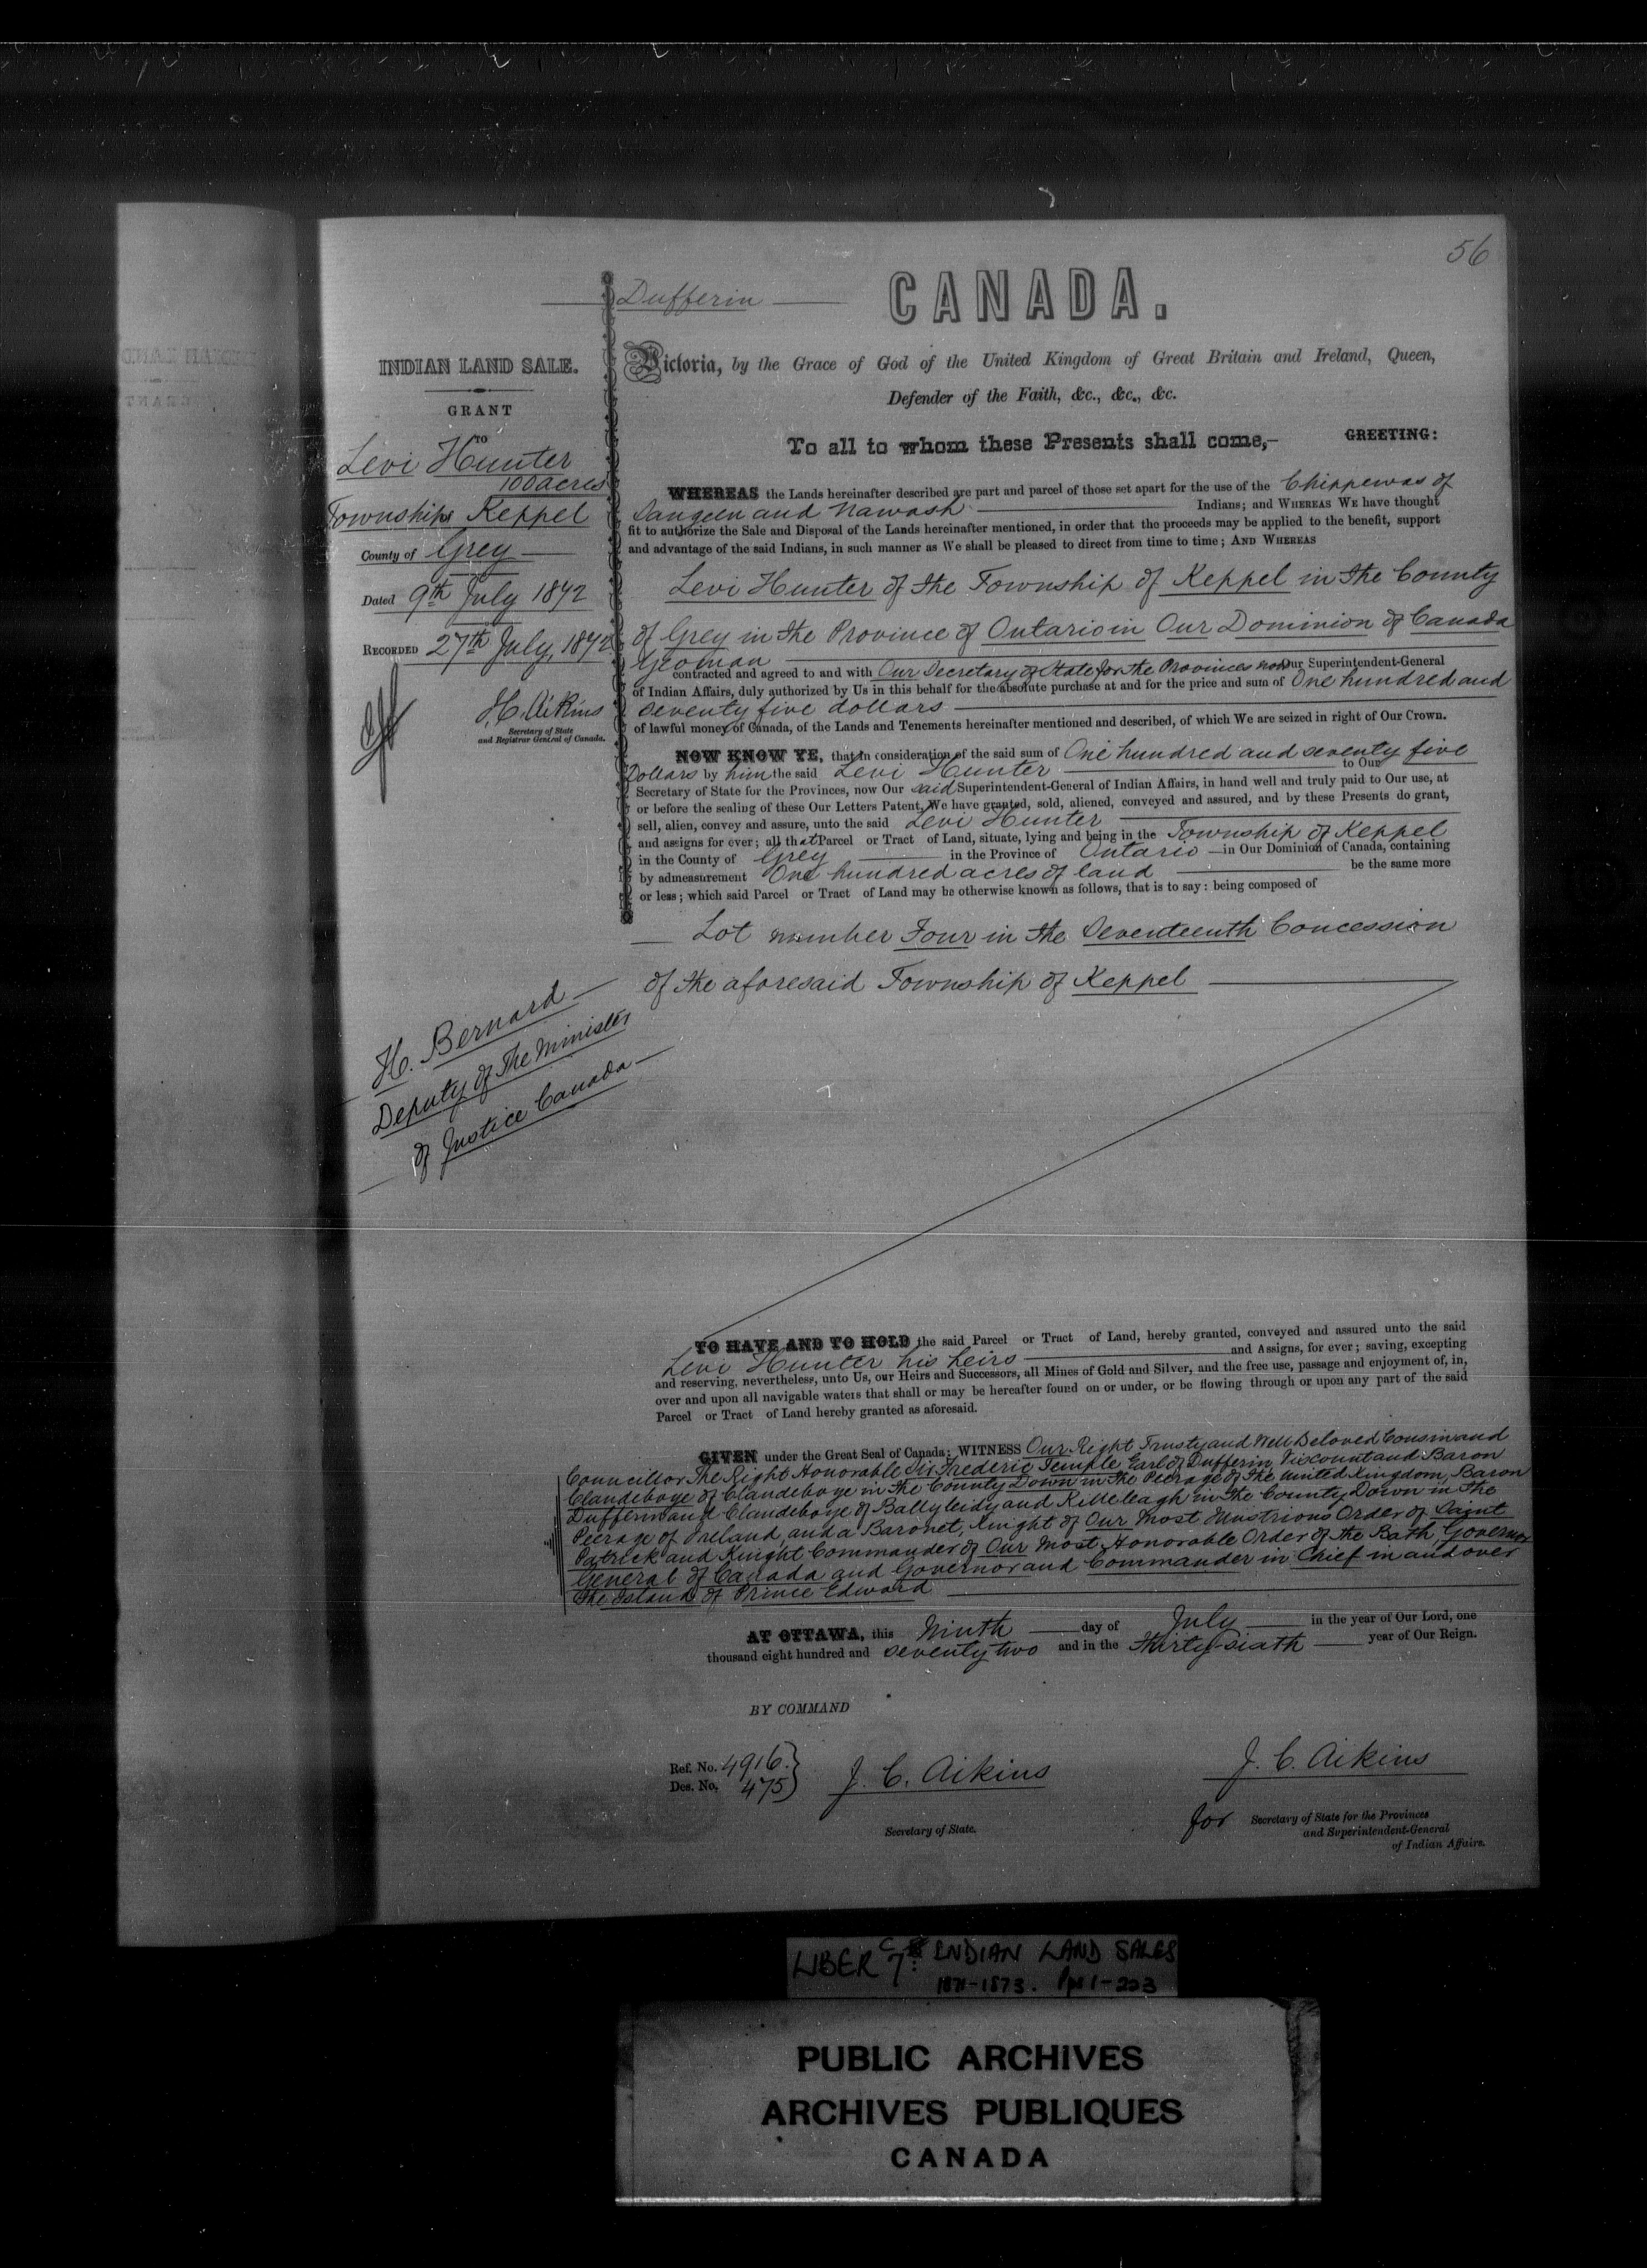 56
Dufferin
CANADA.
INDIAN LAND SALE.
GRANT
TO
Levi Hunter
100 acres
Township Keppel
County of Grey
Dated 9th July 1872
RECORDED 27th July, 1872
Aikins
Secretary of State
and Registrar General of Canada.
Victoria, by the Grace of God of the United Kingdom of Great Britain and Ireland, Queen,
Defender of the Faith, &c., &c., &c.
To all to whom these Presents shall come,- GREETING:
WHEREAS the Lands hereinafter described are part and parcel of those set apart for the use of the Chippewas of
Saugeen and Nawash Indians; and WHEREAS WE have thought
fit to authorize the Sale and Disposal of the Lands hereinafter mentioned, in order that the proceeds may be applied to the benefit, support
and advantage of the said Indians, in such manner as We shall be pleased to direct from time to time; AND WHEREAS
Levi Hunter of the Township of Keppel in the County
of Grey in the Province of Ontario in Our Dominion of Canada
Yeoman
contracted and agreed to and with Our Secretary of State for the Provinces now Our Superintendent-General
of Indian Affairs, duly authorized by Us in this behalf for the absolute purchase at and for the price and sum of One hundred and
seventy five dollars
of lawful money of Canada, of the Lands and Tenements hereinafter mentioned and described, of which We are seized in right of Our Crown.
NOW KNOW YE, that in consideration of the said sum of One hundred and seventy five
Dollars by him the said Levi Hunter to Our
Secretary of State for the Provinces, now Our said Superintendent-General of Indian Affairs, in hand well and truly paid to Our use, at
or before the sealing of these Our Letters Patent, We have granted, sold, aliened, conveyed and assured, and by these Presents do grant,
sell, alien, convey and assure, unto the said Levi Hunter
and assigns for ever; all that Parcel or Tract of Land, situate, lying and being in the Township of Keppel
in the County of Grey in the Province of Ontario in Our Dominion of Canada, containing
by admeasurement One hundred acres of land be the same more
or less; which said Parcel or Tract of Land may be otherwise known as follows, that is to say: being composed of
Lot number Four in the Seventeenth Concession
of the aforesaid Township of Keppel
H. Bernard
Deputy of the Minister
of Justice Canada
TO HAVE AND TO HOLD the said Parcel or Tract of Land, hereby granted, conveyed and assured unto the said
Levi Hunter his heirs and Assigns, for ever; saving, excepting
and reserving, nevertheless, unto Us, our Heirs and Successors, all Mines of Gold and Silver, and the free use, passage and enjoyment of, in,
over and upon all navigable waters that shall or may be hereafter found on or under, or be flowing through or upon any part of the said
Parcel or Tract of Land hereby granted as aforesaid.
GIVEN under the Great Seal of Canada: WITNESS Our Right Trusty and Well Beloved Cousin and
Councillor The Right Honorable Sir Frederic Temple Earl of Dufferin, Viscount and Baron
Clandeboye of Clandeboye in the County Down in the Peerage of the United Kingdom, Baron
Dufferin and Clandeboye of Ballyleidy and Killeleagh in the County Down in the
Peerage of Ireland, and a Baronet, Knight of Our Most Illustrious Order of Saint
Patrick and Knight Commander of Our Most Honorable Order of the Bath, Governor
General of Canada and Governor and Commander in Chief in and over
the Island of Prince Edward
AT OTTAWA, this Ninth day of July in the year of Our Lord, one
thousand eight hundred and seventy two and in the thirty-sixth year of Our Reign.
BY COMMAND
Ref. No. 4916.
Des. No. 475
J. C. Aikins
Secretary of State.
J. C. Aikins
for Secretary of State for the Provinces
and Superintendent-General
of Indian Affairs.
LIBER C7 INDIAN LAND SALES
1871-1873. Pps 1-223
PUBLIC ARCHIVES
ARCHIVES PUBLIQUES
CANADA